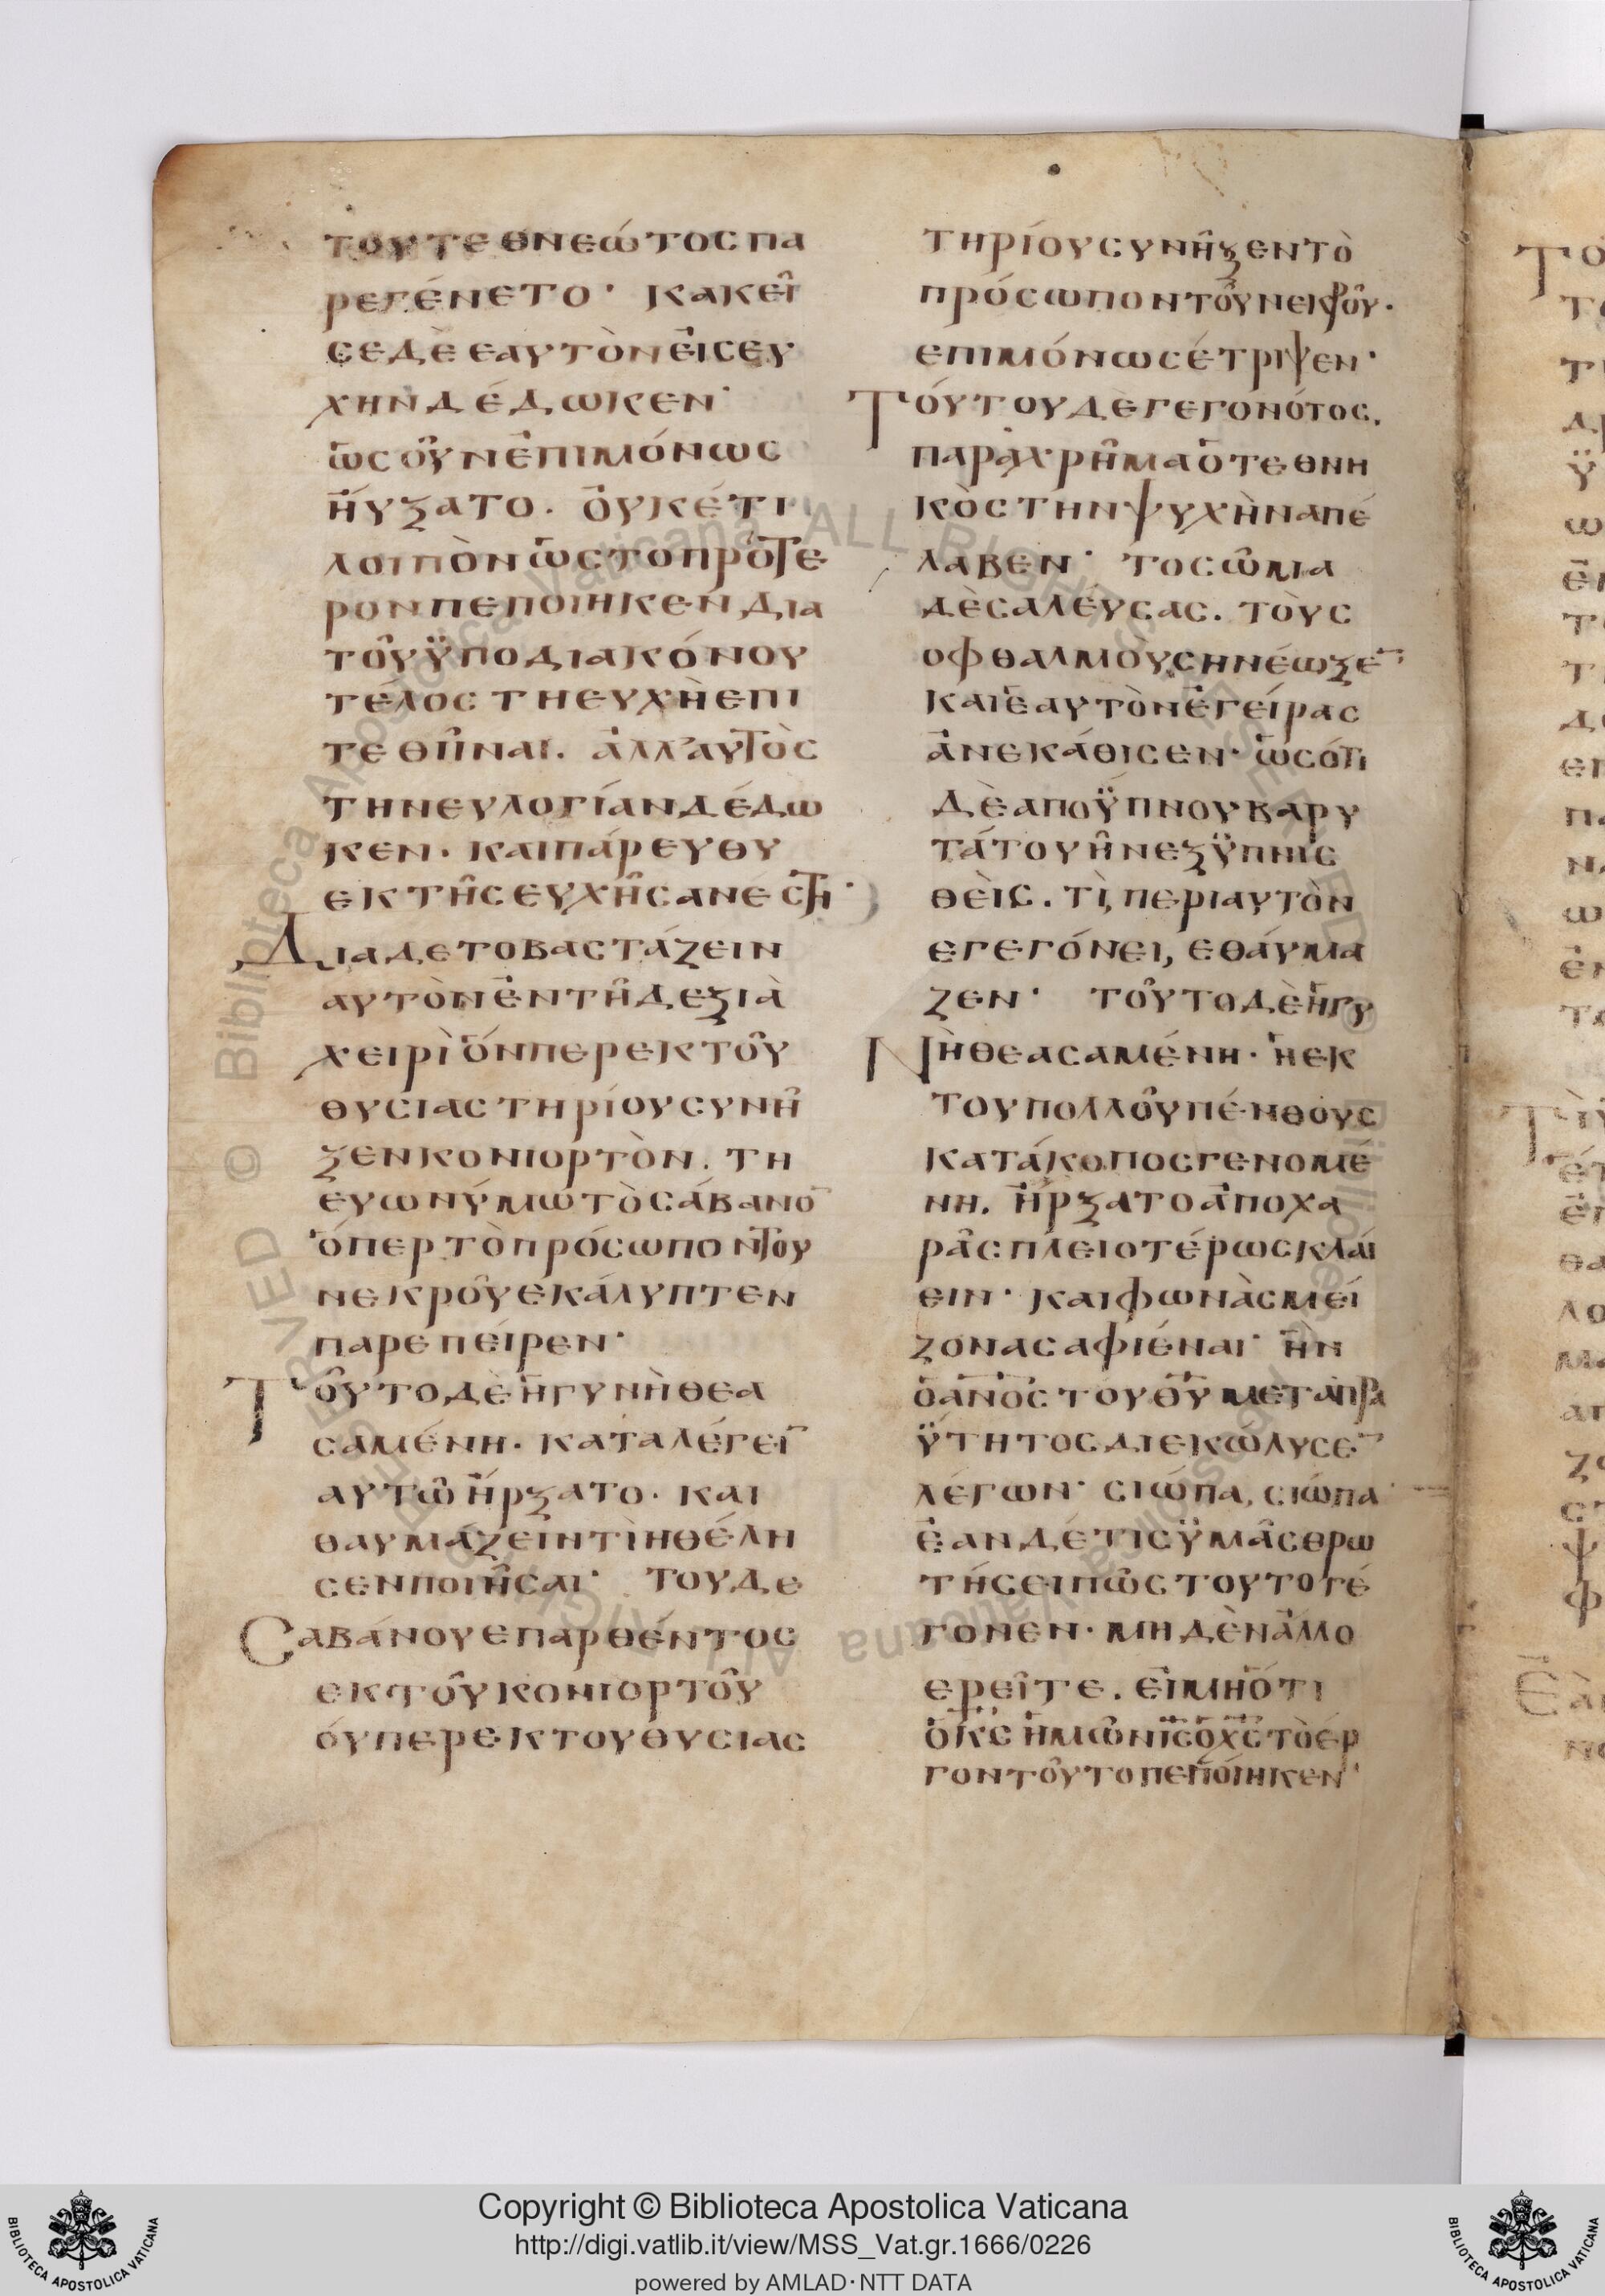 τουτεθνεώτοςπα
ρεγένετο· κακεῖ
σεδὲεαυτὸνεἰσευ
χηνδέδωκεν·
ὡςοὖνἐπιμόνως
ἠύξατο. ὀυκέτι
λοιπὸνὡςτοπρότε
ρονπεποιηκενδια
τοῦϋποδιακόνου
τέλοςτηευχὴεπι
τεθῆναι. ἀλλ'αυτὸς
τηνευλογίανδέδω
κεν. καιπάρευθυ
εκτῆςευχῆςανέστη·
Διαδετοβαστάζειν
αυτὸνἐντῆδεξιὰ
χειρὶὅνπερεκτοῦ
θυσιαστηρίουσυνῆ
ξενκονιορτὸν. τη
ευωνύμωτὸσάβανο̅
ὅπερτὸπρόσωποντου
νεκροῦεκάλυπτεν
παρεπείρεν·
Τοῦτοδὲἡγυνὴθεα
σαμένη. καταλέγει̅
αυτῶἠρξατο. και
θαυμάζειντὶηθέλη
σενποιῆσαι· τουδε
Σαβάνουεπαρθέντος
εκτοῦκονιορτοῦ
όυπερεκτουθυσιας
τηρίουσυνῆξεντὸ
πρόσωποντοῦνεκροῦ.
επιμόνωςέτριψεν·
Τούτουδεγεγονότος.
παραχρῆμαὁτεθνη
κὸςτήνψυχὴναπέ
λαβεν· τοσῶμα
δὲσαλεύσας. τοὺς
οφθαλμοὺςηνέωξε̅
καιἑαυτὸνἐγείρας
ἀνεκάθισεν· ὡσότι
δὲαποϋπνουβαρυ
τάτουῆνεξϋπνις
θὲις. τὶ, περιαυτὸν
εγεγόνει, εθάυμα
ζεν· τοῦτοδὲἡγυ
Νὴθεασαμένη. ἡεκ
τουπολλοῦπένθους
κατάκοποςγενομέ
νη. ἠρξατοἀποχα
ρᾶςπλειοτέρωςκλάι
ειν· καιφωνὰςμεί
ζοναςαφιέναι· ἣν
ὁα̅ν̅ο̅ςτουθ̅υ̅μεταπρα
ϋτητοςδιεκώλυσε̅
λέγων· σιώπα, σιώπα·
ἐανδέτιςϋμᾶςθρω
τήσειπῶςτουτογέ
γονεν. μηδὲνἄλλο
ερεῖτε. εἰμὴὅτι
ὁκ̅ς̅ἡμῶνι̅ς̅ὁχ̅ς̅τὸέρ
γοντοῦτοπεποίηκεν·
Copyright © Biblioteca Apostolica Vaticana
http://digi.vatlib.it/view/MSS_Vat.gr.1666/0226
powered by AMLAD·NTT DATA
BIBLIOTECA APOSTOLICA VATICANA
BIBLIOTECA APOSTOLICA VATICANA